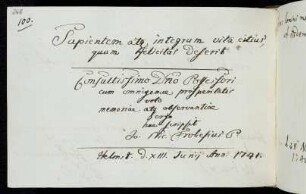 268
100.
Sapientem atq integrum vita citius,
quam felicitas deserit.
Consultissimo Dno Professori
cum omnigenae prosperitatis
voto
memoriae atq observantiae
ergo
haec scripsit
Jo. Nic. Frobesius P
Helmst. d. XIII. Junij Ann 1741.